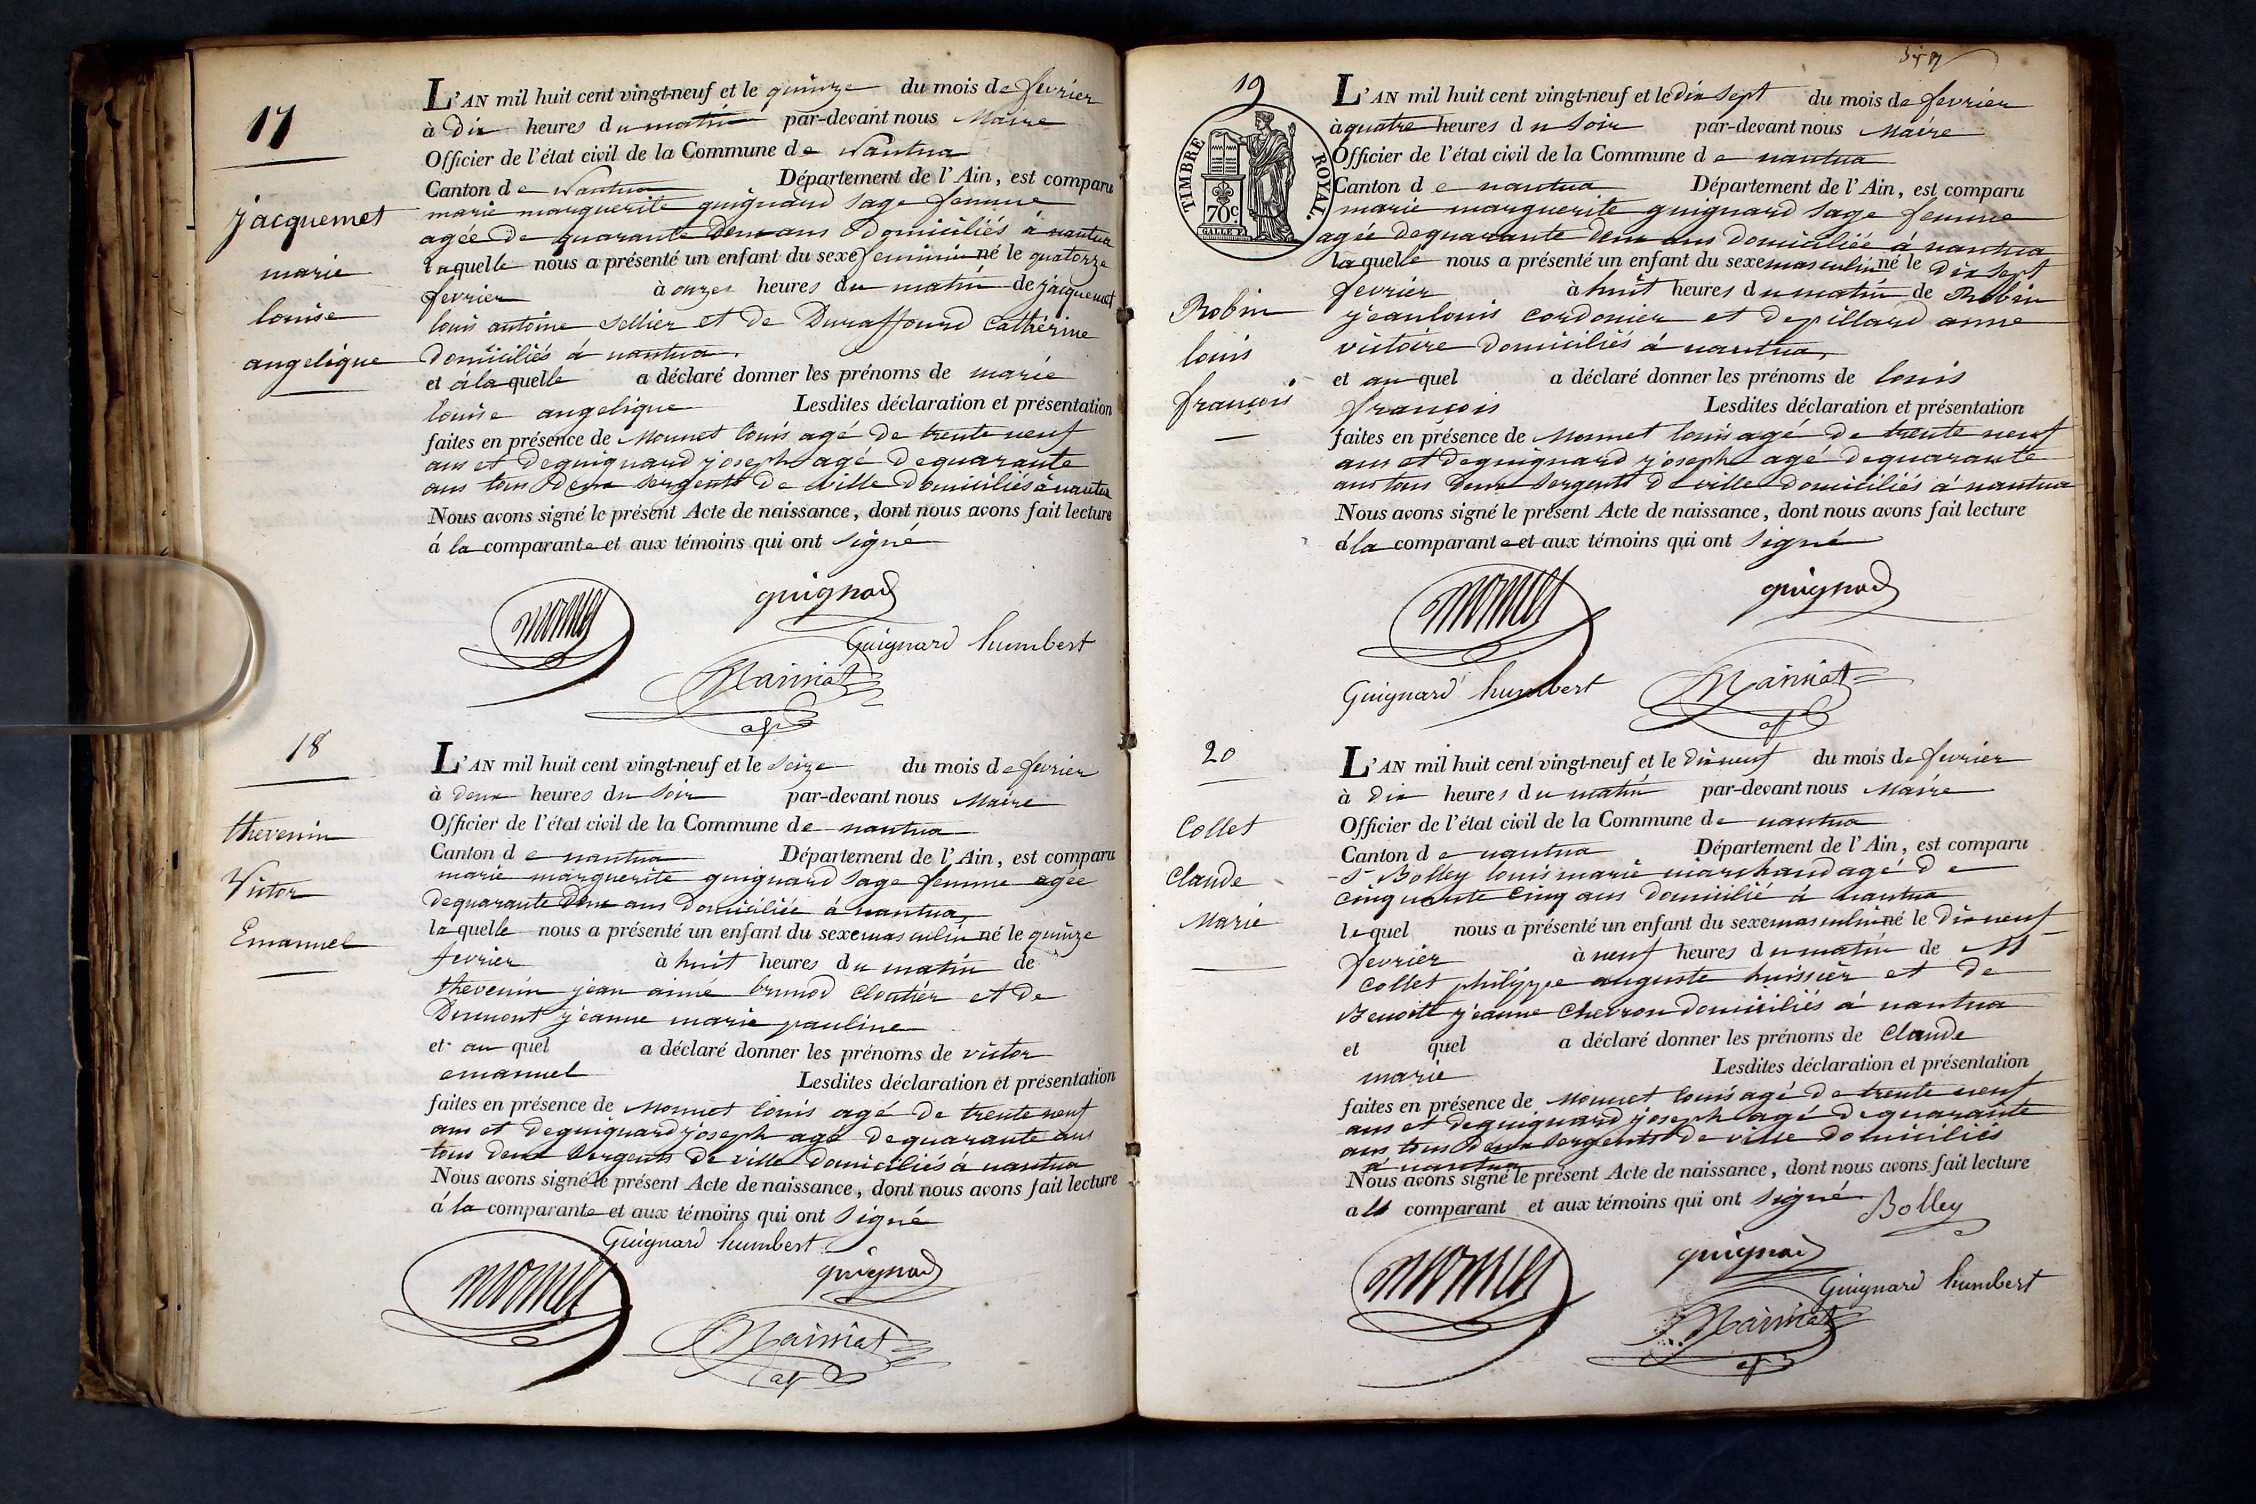 17
jacquemet
marie
louise
angelique
L'AN mil huit cent vingt-neuf et le quinze du mois de fevrier
à dix heures du matin par-devant nous Maire
Officier de l'état civil de la Commune de Nantua
Canton de Nantua Département de l'Ain, est comparu
marie marguerite guignard sage femme
agée de quarante deux ans domiciliée à nantua
laquelle nous a présenté un enfant du sexe feminin né le quatorze
fevrier à onze heures du matin de jacquemet
louis antoine sellier et de Duraffourd cathérine
domiciliés à nantua.
et à laquelle a déclaré donner les prénoms de marie
louise angelique Lesdites déclaration et présentation
faites en présence de Monnet louis agé de trente neuf
ans et de guignard joseph agé de quarante
ans tous deux sergents de ville domiciliés à nantua
Nous avons signé le présent Acte de naissance, dont nous avons fait lecture
à la comparante et aux témoins qui ont signé
monnet
guignard
Guignard humbert
18
thevenin
Victor
Emanuel
L'AN mil huit cent vingt-neuf et le seize du mois de fevrier
à deux heures du soir par-devant nous Maire
Officier de l'état civil de la Commune de nantua
Canton de nantua Département de l'Ain, est comparu
marie marguerite guignard sage femme agée
de quarante deux ans domiciliée à nantua,
laquelle nous a présenté un enfant du sexe masculin né le quinze
fevrier à huit heures du matin de
thevenin jean anné brunod cloutier et de
Dumont jeanne marie pauline
et au quel a déclaré donner les prénoms de victor
emanuel Lesdites déclaration et présentation
faites en présence de Monnet louis agé de trente neuf
ans et de guignard joseph agé de quarante ans
tous deux sergents de ville domiciliés à nantua
Nous avons signé le présent Acte de naissance, dont nous avons fait lecture
à la comparante et aux témoins qui ont signé
Guignard humbert
monnet
guignard
19
TIMBRE ROYAL.
70c.
Robin
louis
françois
L'AN mil huit cent vingt-neuf et le dix sept du mois de fevrier
à quatre heures du soir par-devant nous Maire
Officier de l'état civil de la Commune de nantua
Canton de nantua Département de l'Ain, est comparu
marie marguerite guignard sage femme
agée de quarante deux ans domiciliée à nantua
laquelle nous a présenté un enfant du sexe masculin né le dix sept
fevrier à huit heures du matin de Robin
jean louis cordonier et de pillard anne
victoire domiciliés à nantua,
et au quel a déclaré donner les prénoms de louis
françois Lesdites déclaration et présentation
faites en présence de Monnet louis agé de trente neuf
ans et de guignard joseph agé de quarante
ans tous deux sergents de ville domiciliés à nantua
Nous avons signé le présent Acte de naissance, dont nous avons fait lecture
à la comparante et aux témoins qui ont signé
monnet
guignard
Guignard humbert
20
Collet
Claude
Marie
L'AN mil huit cent vingt-neuf et le dix neuf du mois de fevrier
à dix heures du matin par-devant nous Maire
Officier de l'état civil de la Commune de nantua
Canton de nantua Département de l'Ain, est comparu
Sr Bolley louis marie marchand agé de
cinquante cinq ans domicilié à nantua
lequel nous a présenté un enfant du sexe masculin né le dix neuf
fevrier à neuf heures du matin de Mr
collet philippe auguste huissier et de
Benoite jeanne Chevron domiciliés à nantua
et quel a déclaré donner les prénoms de Claude
marie Lesdites déclaration et présentation
faites en présence de Monnet louis agé de trente neuf
ans et de guignard joseph agé de quarante
ans tous deux sergents de ville domiciliés
à nantua
Nous avons signé le présent Acte de naissance, dont nous avons fait lecture
a comparant et aux témoins qui ont signé
Bolley
monnet
guignard
Guignard humbert